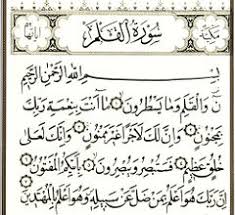 مكية سُورَةُ القَلَمِ آياتها
بِسْمِ اللَّهِ الرَّحْمَٰنِ الرَّحِيمِ
نٓ وَالْقَلَمِ وَمَا يَسْطُرُونَ مَا أَنتَ بِنِعْمَةِ رَبِّكَ
بِمَجْنُونٍ وَإِنَّ لَكَ لَأَجْرًا غَيْرَ مَمْنُونٍ وَإِنَّكَ لَعَلَىٰ
خُلُقٍ عَظِيمٍ فَسَتُبْصِرُ وَيُبْصِرُونَ بِأَييِّكُمُ الْمَفْتُونُ
إِنَّ رَبَّكَ هُوَ أَعْلَمُ بِمَن ضَلَّ عَن سَبِيلِهِ وَهُوَ أَعْلَمُ بِالْمُهْتَدِينَ